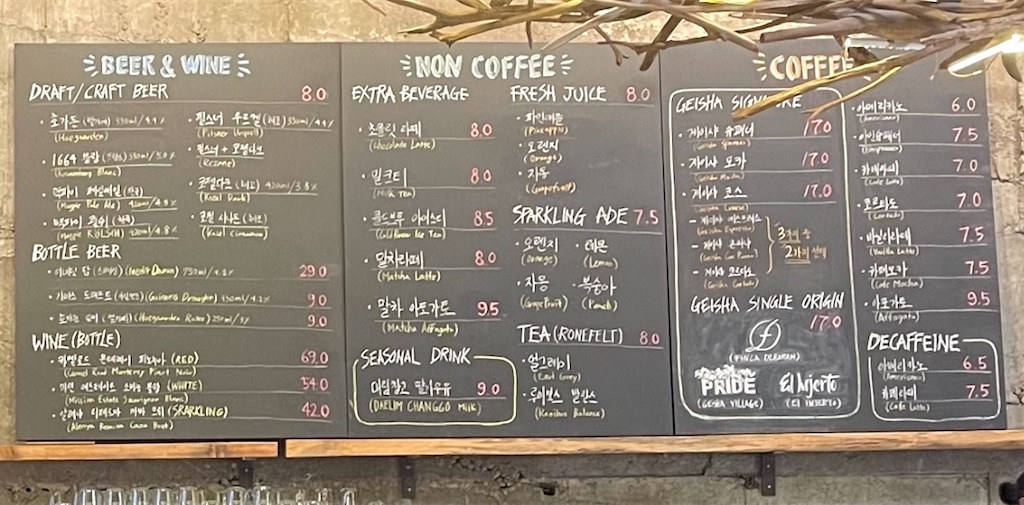 BEER & WINE
DRAFT/CRAFT BEER 8.0
호가든 (벨기에) 330ml/4.9%
(Hoegaarden)
1664 블랑 (프랑스) 330ml/5.0%
(Kronenbourg Blanc)
맥파이 페일에일 (한국)
(Magpie Pale Ale) 420ml/4.8%
맥파이 쾰쉬 (한국)
(Magpie KÖLSCH) 420ml/4.8%
필스너 우르켈 (체코) 330ml/4.4%
(Pilsner Urquell)
필스너 + 코젤다크
(Rezane)
코젤다크 (체코) 420ml/3.8%
(Kozel Dark)
코젤 시나몬 (체코)
(Kozel Cinnamon)
BOTTLE BEER
이네딧 담 (스페인) (Inedit Damm) 750ml/4.8% 29.0
기네스 드래프트 (아일랜드) (Guinness Draught) 330ml/4.2% 9.0
호가든 로제 (벨기에) (Hoegaarden Rosee) 250ml/3% 9.0
WINE (BOTTLE)
카멜로드 몬테레이 피노누아 (RED) 69.0
(Camel Road Monterey Pinot Noir)
미션 에스테이트 소비뇽 블랑 (WHITE) 54.0
(Mission Estate Sauvignon Blanc)
(SPARKLING) 42.0
NON COFFEE
EXTRA BEVERAGE
초콜릿 라떼 8.0
(Chocolate Latte)
밀크티 8.0
(Milk Tea)
콜드브루 아이스티 8.5
(Cold Brew Ice Tea)
말차라떼 8.0
(Matcha Latte)
말차 아포가토 9.5
(Matcha Affogato)
SEASONAL DRINK
대림창고 딸기우유 9.0
(DAELIM CHANGGO Milk)
FRESH JUICE 8.0
파인애플
(Pineapple)
오렌지
(Orange)
자몽
(Grapefruit)
SPARKLING ADE 7.5
오렌지
(Orange)
레몬
(Lemon)
자몽
(Grapefruit)
복숭아
(Peach)
TEA (RONEFELT) 8.0
얼그레이
(Earl Grey)
루이보스 발란스
(Rooibos Balance)
COFFEE
GEISHA SIGNATURE
게이샤 슈페너 17.0
(Geisha Spanner)
게이샤 모카 17.0
(Geisha Mocha)
게이샤 코스 17.0
(Geisha Course)
- 게이샤 에스프레소
(Geisha Espresso)
- 게이샤 콘파나
(Geisha Con Panna)
- 게이샤 코르타도
(Geisha Cortado)
3가지 중
2가지 선택
GEISHA SINGLE ORIGIN
17.0
(FINCA DEBORAH)
PRIDE
(GESHA VILLAGE)
El Injerto
(El INJERTO)
아메리카노 6.0
(Americano)
아인슈페너 7.5
(Einspanner)
카페라떼 7.0
(Cafe Latte)
코르타도 7.0
(Cortado)
바닐라라떼 7.5
(Vanilla Latte)
카페모카 7.5
(Cafe Mocha)
아포가토 9.5
(Affogato)
DECAFFEINE
아메리카노 6.5
(Americano)
카페라떼 7.5
(Cafe Latte)